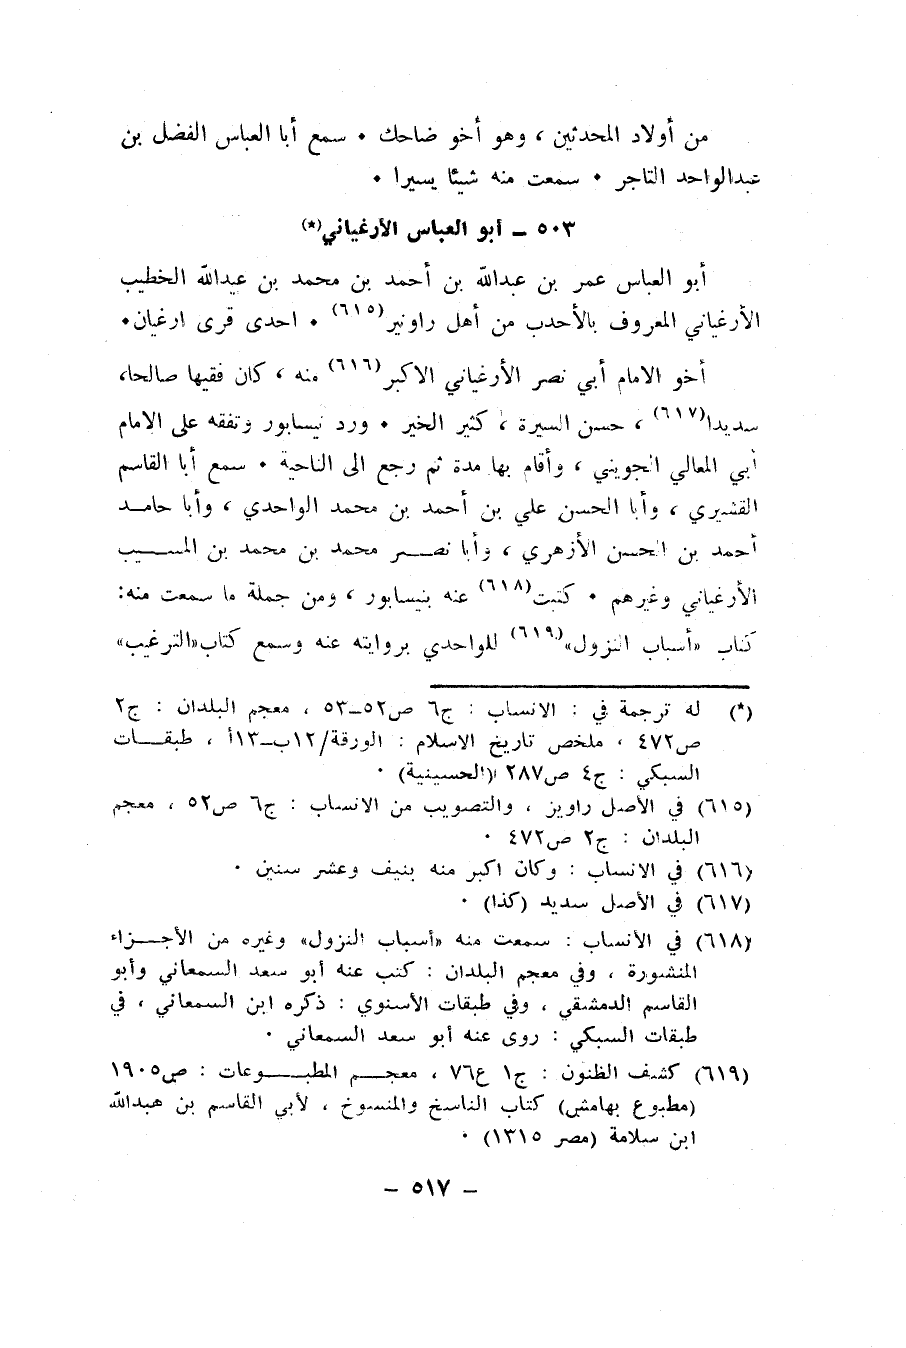 من أولاد المحدثين ، وهو أخو ضاحك • سمع أبا العباس الفضل بن
عبدالواحد التاجر • سمعت منه شيئا يسيرا •
٥٠٣ ــ أبو العباس الأرغياني(*)
أبو العباس عمر بن عبدالله بن أحمد بن محمد بن عبدالله الخطيب
الأرغياني المعروف بالأحدب من أهل راونير(٦١٥) • احدى قرى ارغيان•
أخو الامام أبي نصر الأرغياني الاكبر(٦١٦) منه ، كان فقيها صالحا،
سديدا(٦١٧) ، حسن السيرة ، كثير الخير • ورد نيسابور وتفقه على الامام
أبي المعالي الجويني ، وأقام بها مدة ثم رجع الى الناحية • سمع أبا القاسم
القشيري ، وأبا الحسن علي بن أحمد بن محمد الواحدي ، وأبا حامــد
أحمد بن الحسن الأزهري ، وأبا نصــر محمد بن محمد بن المســيب
الأرغياني وغيرهم • كتبت(٦١٨) عنه بنيسابور ، ومن جملة ما سمعت منه:
كتاب «أسباب النزول»(٦١٩) للواحدي بروايته عنه وسمع كتاب«الترغيب»
(*) له ترجمة في : الانساب : ج٦ ص٥٢ــ٥٣ ، معجم البلدان : ج٢
ص٤٧٢ ، ملخص تاريخ الاسلام : الورقة/١٢ب–١٣أ ، طبقــات
السبكي : ج٤ ص٢٨٧ (الحسينية) •
(٦١٥) في الأصل راويز ، والتصويب من الانساب : ج٦ ص٥٢ ، معجم
البلدان : ج٢ ص٤٧٢ •
(٦١٦) في الانساب : وكان اكبر منه بنيف وعشر سنين •
(٦١٧) في الأصل سديد (كذا) •
(٦١٨) في الأنساب : سمعت منه «أسباب النزول» وغيره من الأجــزاء
المنشورة ، وفي معجم البلدان : كتب عنه أبو سعد السمعاني وأبو
القاسم الدمشقي ، وفي طبقات الأسنوي : ذكره ابن السمعاني ، في
طبقات السبكي : روى عنه أبو سعد السمعاني •
(٦١٩) كشف الظنون : ج١ ع٧٦ ، معجــم المطبــوعات : ص١٩٠٥
(مطبوع بهامش) كتاب الناسخ والمنسوخ ، لأبي القاسم بن هبدالله
ابن سلامة (مصر ١٣١٥) •
– ٥١٧ –